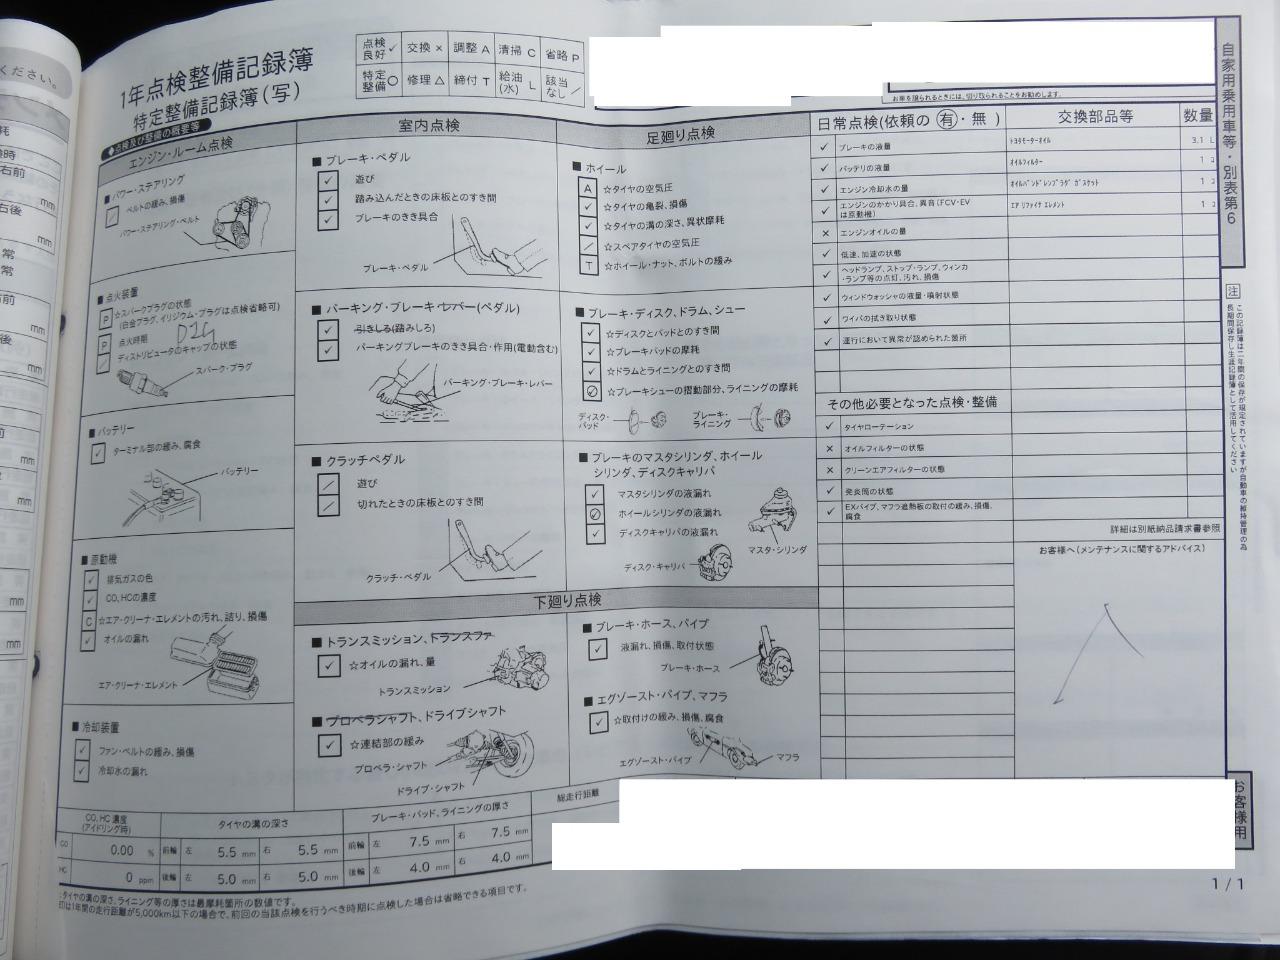 1年点検整備記録簿
特定整備記録簿(写)
点検良好 ✓ 交換 × 調整 A 清掃 C 省略 P
特定整備 ○ 修理 △ 締付 T 給油(水) L 該当なし ／
お車を譲られるときには、切り取られることをお勧めします。
自家用乗用車等・別表第6
◆点検及び整備の概要等
エンジン・ルーム点検
■ パワー・ステアリング
／ ベルトの緩み、損傷
パワー・ステアリング・ベルト
■ 点火装置
P ☆スパークプラグの状態
(白金プラグ、イリジウム・プラグは点検省略可)
P 点火時期
／ ディストリビュータのキャップの状態
スパーク・プラグ
■ バッテリー
✓ ターミナル部の緩み、腐食
バッテリー
■ 原動機
✓ 排気ガスの色
✓ CO、HCの濃度
C ☆エア・クリーナ・エレメントの汚れ、詰り、損傷
✓ オイルの漏れ
エア・クリーナ・エレメント
■ 冷却装置
✓ ファン・ベルトの緩み、損傷
✓ 冷却水の漏れ
室内点検
■ ブレーキ・ペダル
✓ 遊び
✓ 踏み込んだときの床板とのすき間
✓ ブレーキのきき具合
ブレーキ・ペダル
■ パーキング・ブレーキ・レバー(ペダル)
✓ 引きしろ(踏みしろ)
✓ パーキングブレーキのきき具合・作用(電動含む)
パーキング・ブレーキ・レバー
■ クラッチペダル
／ 遊び
／ 切れたときの床板とのすき間
クラッチ・ペダル
足廻り点検
■ ホイール
A ☆タイヤの空気圧
✓ ☆タイヤの亀裂、損傷
✓ ☆タイヤの溝の深さ、異状摩耗
／ ☆スペアタイヤの空気圧
T ☆ホイール・ナット、ボルトの緩み
■ ブレーキ・ディスク、ドラム、シュー
✓ ☆ディスクとパッドとのすき間
✓ ☆ブレーキパッドの摩耗
✓ ☆ドラムとライニングとのすき間
☆ブレーキシューの摺動部分、ライニングの摩耗
ディスク・パッド
ブレーキ・ライニング
■ ブレーキのマスタシリンダ、ホイール
シリンダ、ディスクキャリパ
✓ マスタシリンダの液漏れ
ホイールシリンダの液漏れ
✓ ディスクキャリパの液漏れ
マスタ・シリンダ
ディスク・キャリパ
下廻り点検
■ トランスミッション、トランスファ
✓ ☆オイルの漏れ、量
トランスミッション
■ プロペラシャフト、ドライブシャフト
✓ ☆連結部の緩み
プロペラ・シャフト
ドライブ・シャフト
■ ブレーキ・ホース、パイプ
✓ 液漏れ、損傷、取付状態
ブレーキ・ホース
■ エグゾースト・パイプ、マフラ
✓ ☆取付けの緩み、損傷、腐食
エグゾースト・パイプ
マフラ
日常点検(依頼の 有・無 )
✓ ブレーキの液量
✓ バッテリの液量
✓ エンジン冷却水の量
✓ エンジンのかかり具合、異音(FCV・EVは原動機)
× エンジンオイルの量
✓ 低速、加速の状態
✓ ヘッドランプ、ストップ・ランプ、ウィンカ・ランプ等の点灯、汚れ、損傷
✓ ウィンドウォッシャの液量・噴射状態
✓ ワイパの拭き取り状態
✓ 運行において異常が認められた箇所
その他必要となった点検・整備
✓ タイヤローテーション
× オイルフィルターの状態
× クリーンエアフィルターの状態
✓ 発炎筒の状態
✓ EXパイプ、マフラ遮熱板の取付の緩み、損傷、腐食
交換部品等 数量
ﾄﾖﾀﾓｰﾀｰｵｲﾙ 3.1 L
ｵｲﾙﾌｨﾙﾀｰ 1 ｺ
ｵｲﾙﾊﾟﾝﾄﾞﾚﾝﾌﾟﾗｸﾞ ｶﾞｽｹｯﾄ 1 ｺ
ｴｱ ﾘﾌｧｲﾅ ｴﾚﾒﾝﾄ 1 ｺ
詳細は別紙納品請求書参照
お客様へ(メンテナンスに関するアドバイス)
注 この記録簿は二年間の保存が規定されていますが自動車の維持管理の為
長期間保存し生涯記録簿として活用してください
CO、HC 濃度
(アイドリング時)
タイヤの溝の深さ
ブレーキ・パッド、ライニングの厚さ
総走行距離
CO 0.00 % 前輪 左 5.5 mm 右 5.5 mm 前輪 左 7.5 mm 右 7.5 mm
HC 0 ppm 後輪 左 5.0 mm 右 5.0 mm 後輪 左 4.0 mm 右 4.0 mm
タイヤの溝の深さ、ライニング等の厚さは最摩耗箇所の数値です。
印は1年間の走行距離が5,000km以下の場合で、前回の当該点検を行うべき時期に点検した場合は省略できる項目です。
お客様用
1 / 1